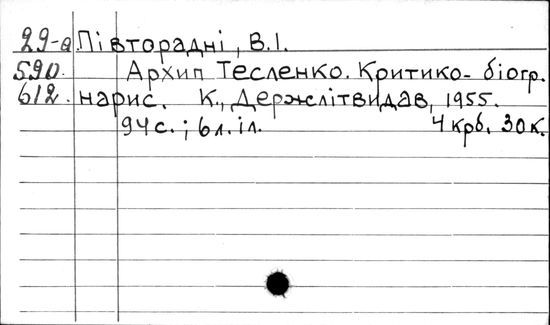 29-а Півторадні, В.І.
590 Архип Тесленко. Критико-біогр.
612 нарис. К., Держлітвидав, 1955.
94с.; 6л.іл. 4 крб. 30к.